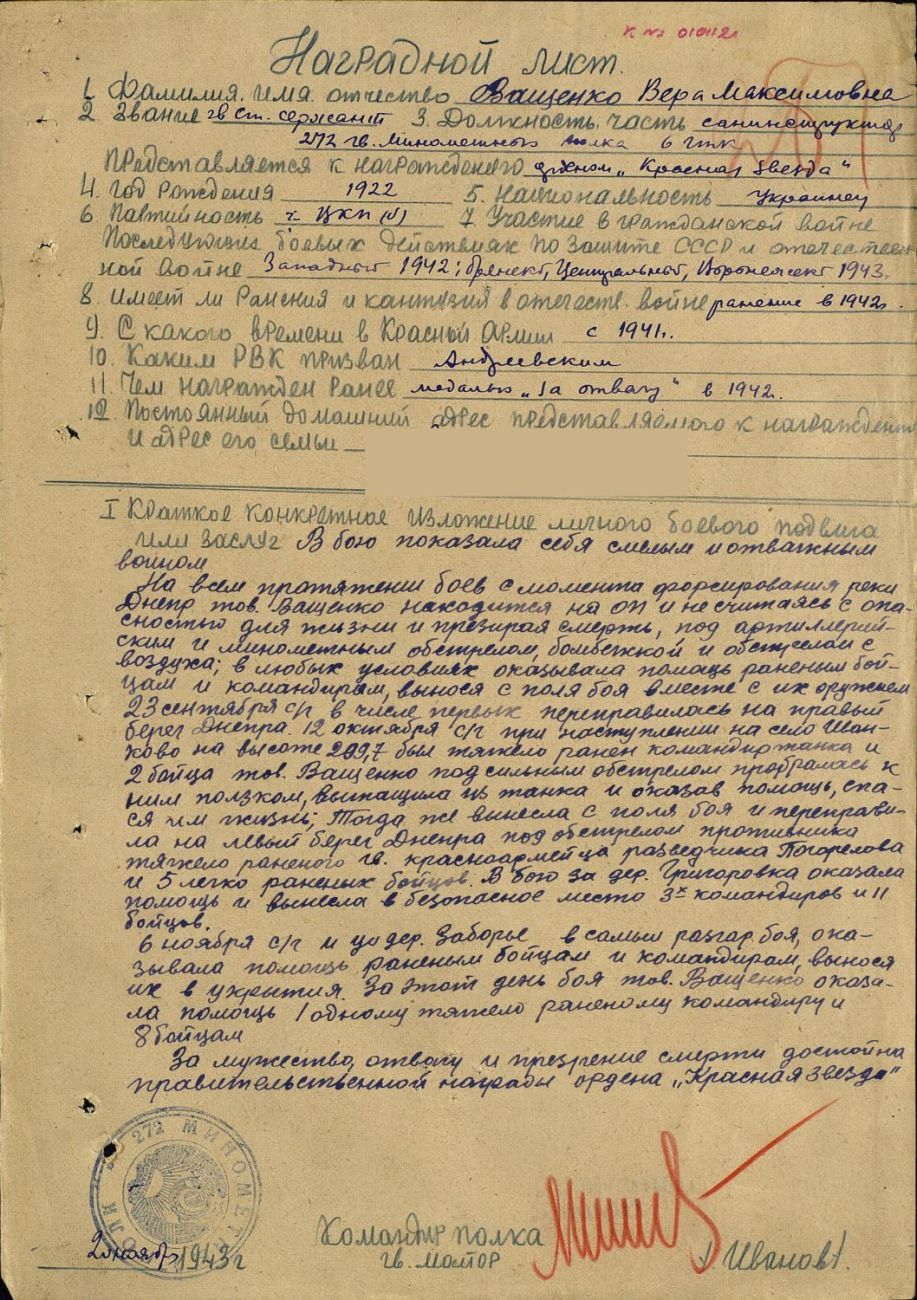 Наградной лист.
1. Фамилия. имя. отчество Ващенко Вера Максимовна
2 Звание гв ст. сержант 3. Должность. часть санинструктор
272 гв. Минометного полка 6 гтк
Представляется к награждению орденом „Красная Звезда"
4. Год рождения 1922 5. Национальность Украинец
6 Партийность ч. ВКП(б) 7. Участие в гражданской войне
Последующих боевых действиях по защите СССР и отечествен
ной войне Западный 1942; Брянск, Центральный, Воронежск 1943.
8. Имеет ли ранения и кантузия в отечеств. войне ранение в 1942г.
9. С какого времени в Красной армии с 1941г.
10. Каким РВК призван Андреевским
11. Чем награжден ранее медалью „За отвагу" в 1942г.
12 Постоянный домашний адрес представляемого к награждению
и адрес его семьи
I Краткое конкретное изложение личного боевого подвига
или заслуг В бою показала себя смелым и отважным
воином
На всем протяжении боев с момента форсирования реки
Днепр тов. Ващенко находится на ОП и не считаясь с опа-
сностью для жизни и презирая смерть, под артиллерий-
ским и минометным обстрелом, бомбежкой и обстрелом с
воздуха; в любых условиях оказывала помощь раненым бой-
цам и командирам, вынося с поля боя вместе с их оружием
23 сентября с/г в числе первых переправилась на правый
берег Днепра. 12 октября с/г при наступлении на село
на высоте был тяжело ранен командир танка и
2 бойца тов. Ващенко под сильным обстрелом пробралась к
ним ползком, вытащила из танка и оказав помощь, спа-
ся им жизнь; Тогда же вынесла с поля боя и переправи-
ла на левый берег Днепра под обстрелом противника
тяжело раненого гв. красноармейца разведчика Погорелова
и 5 легко раненых бойцов. В бою за дер. Григоровка оказала
помощь и вынесла в безопасное место 3х командиров и 11
бойцов.
6 ноября с/г дер. Заборье в самый разгар боя, ока-
зывала помощь раненым бойцам и командирам, вынося
их в укрытия. За этот день боя тов. Ващенко оказа-
ла помощь 1 одному тяжело раненому командиру и
8 бойцам
За мужество, отвагу и презрение смерти достойна
правительственной награды ордена „Красная звезда"
272 МИНОМЕТ
Командир полка
гв. майор /Иванов/.
ноябр 1943г